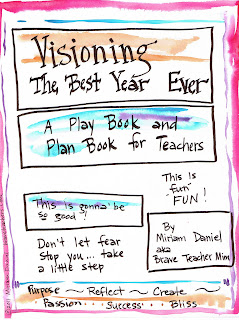 Visioning
The Best Year Ever
A Play Book and
Plan Book for Teachers
This is gonna be
so good!
This is
"fun"
FUN!
Don't let fear
stop you... take
a little step
By
Miriam Daniel
aka
Brave Teacher Mim
Purpose ~ Reflect ~ Create
Passion... Success... Bliss